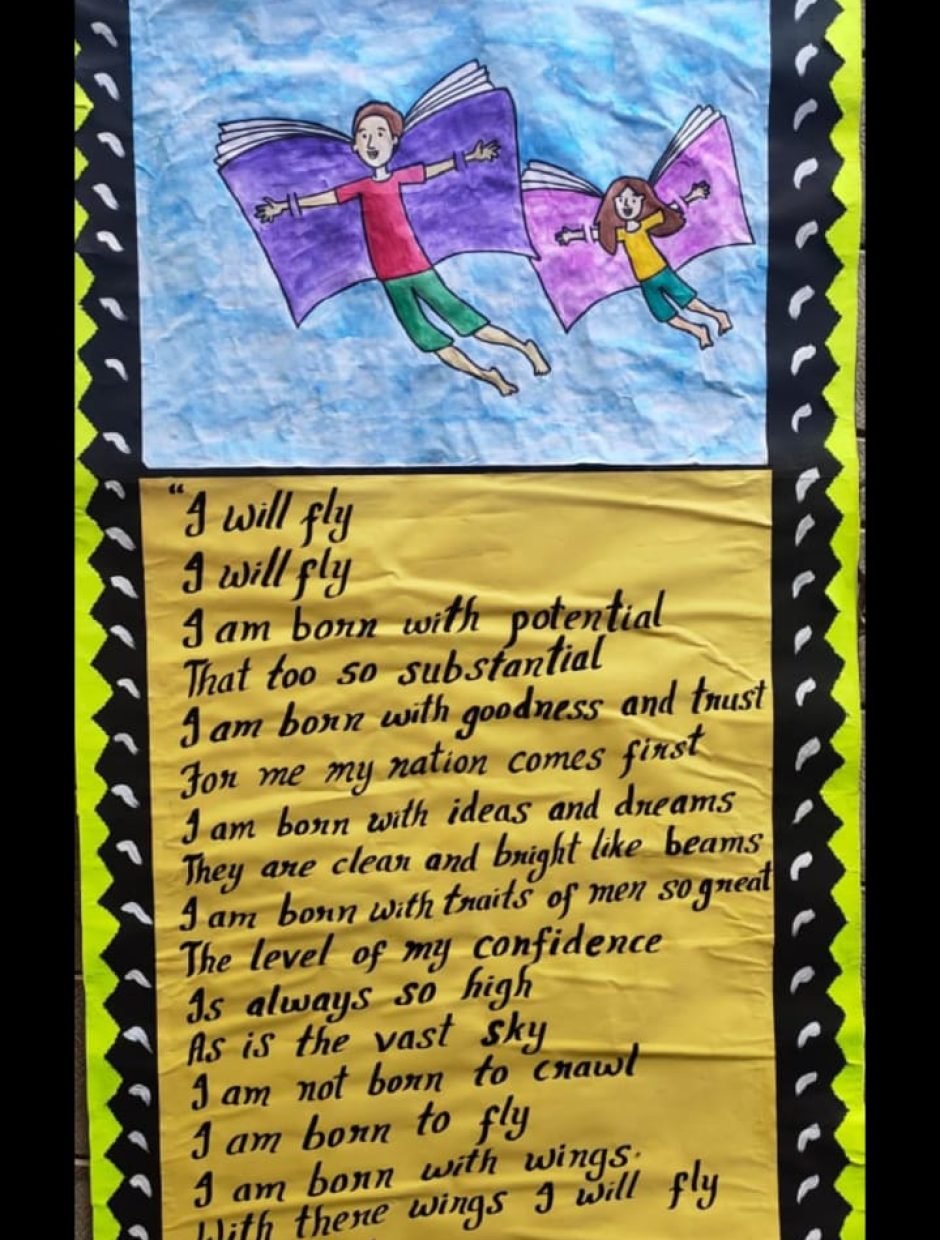 "I will fly
I will fly
I am born with potential
That too so substantial
I am born with goodness and trust
For me my nation comes first
I am born with ideas and dreams
They are clear and bright like beams
I am born with traits of men so great
The level of my confidence
Is always so high
As is the vast sky
I am not born to crawl
I am born to fly
I am born with wings.
With there wings I will fly